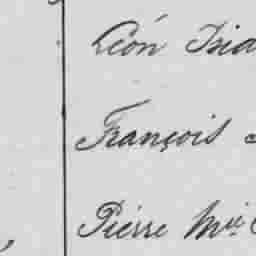 Léon Isid
François
Pierre Mie